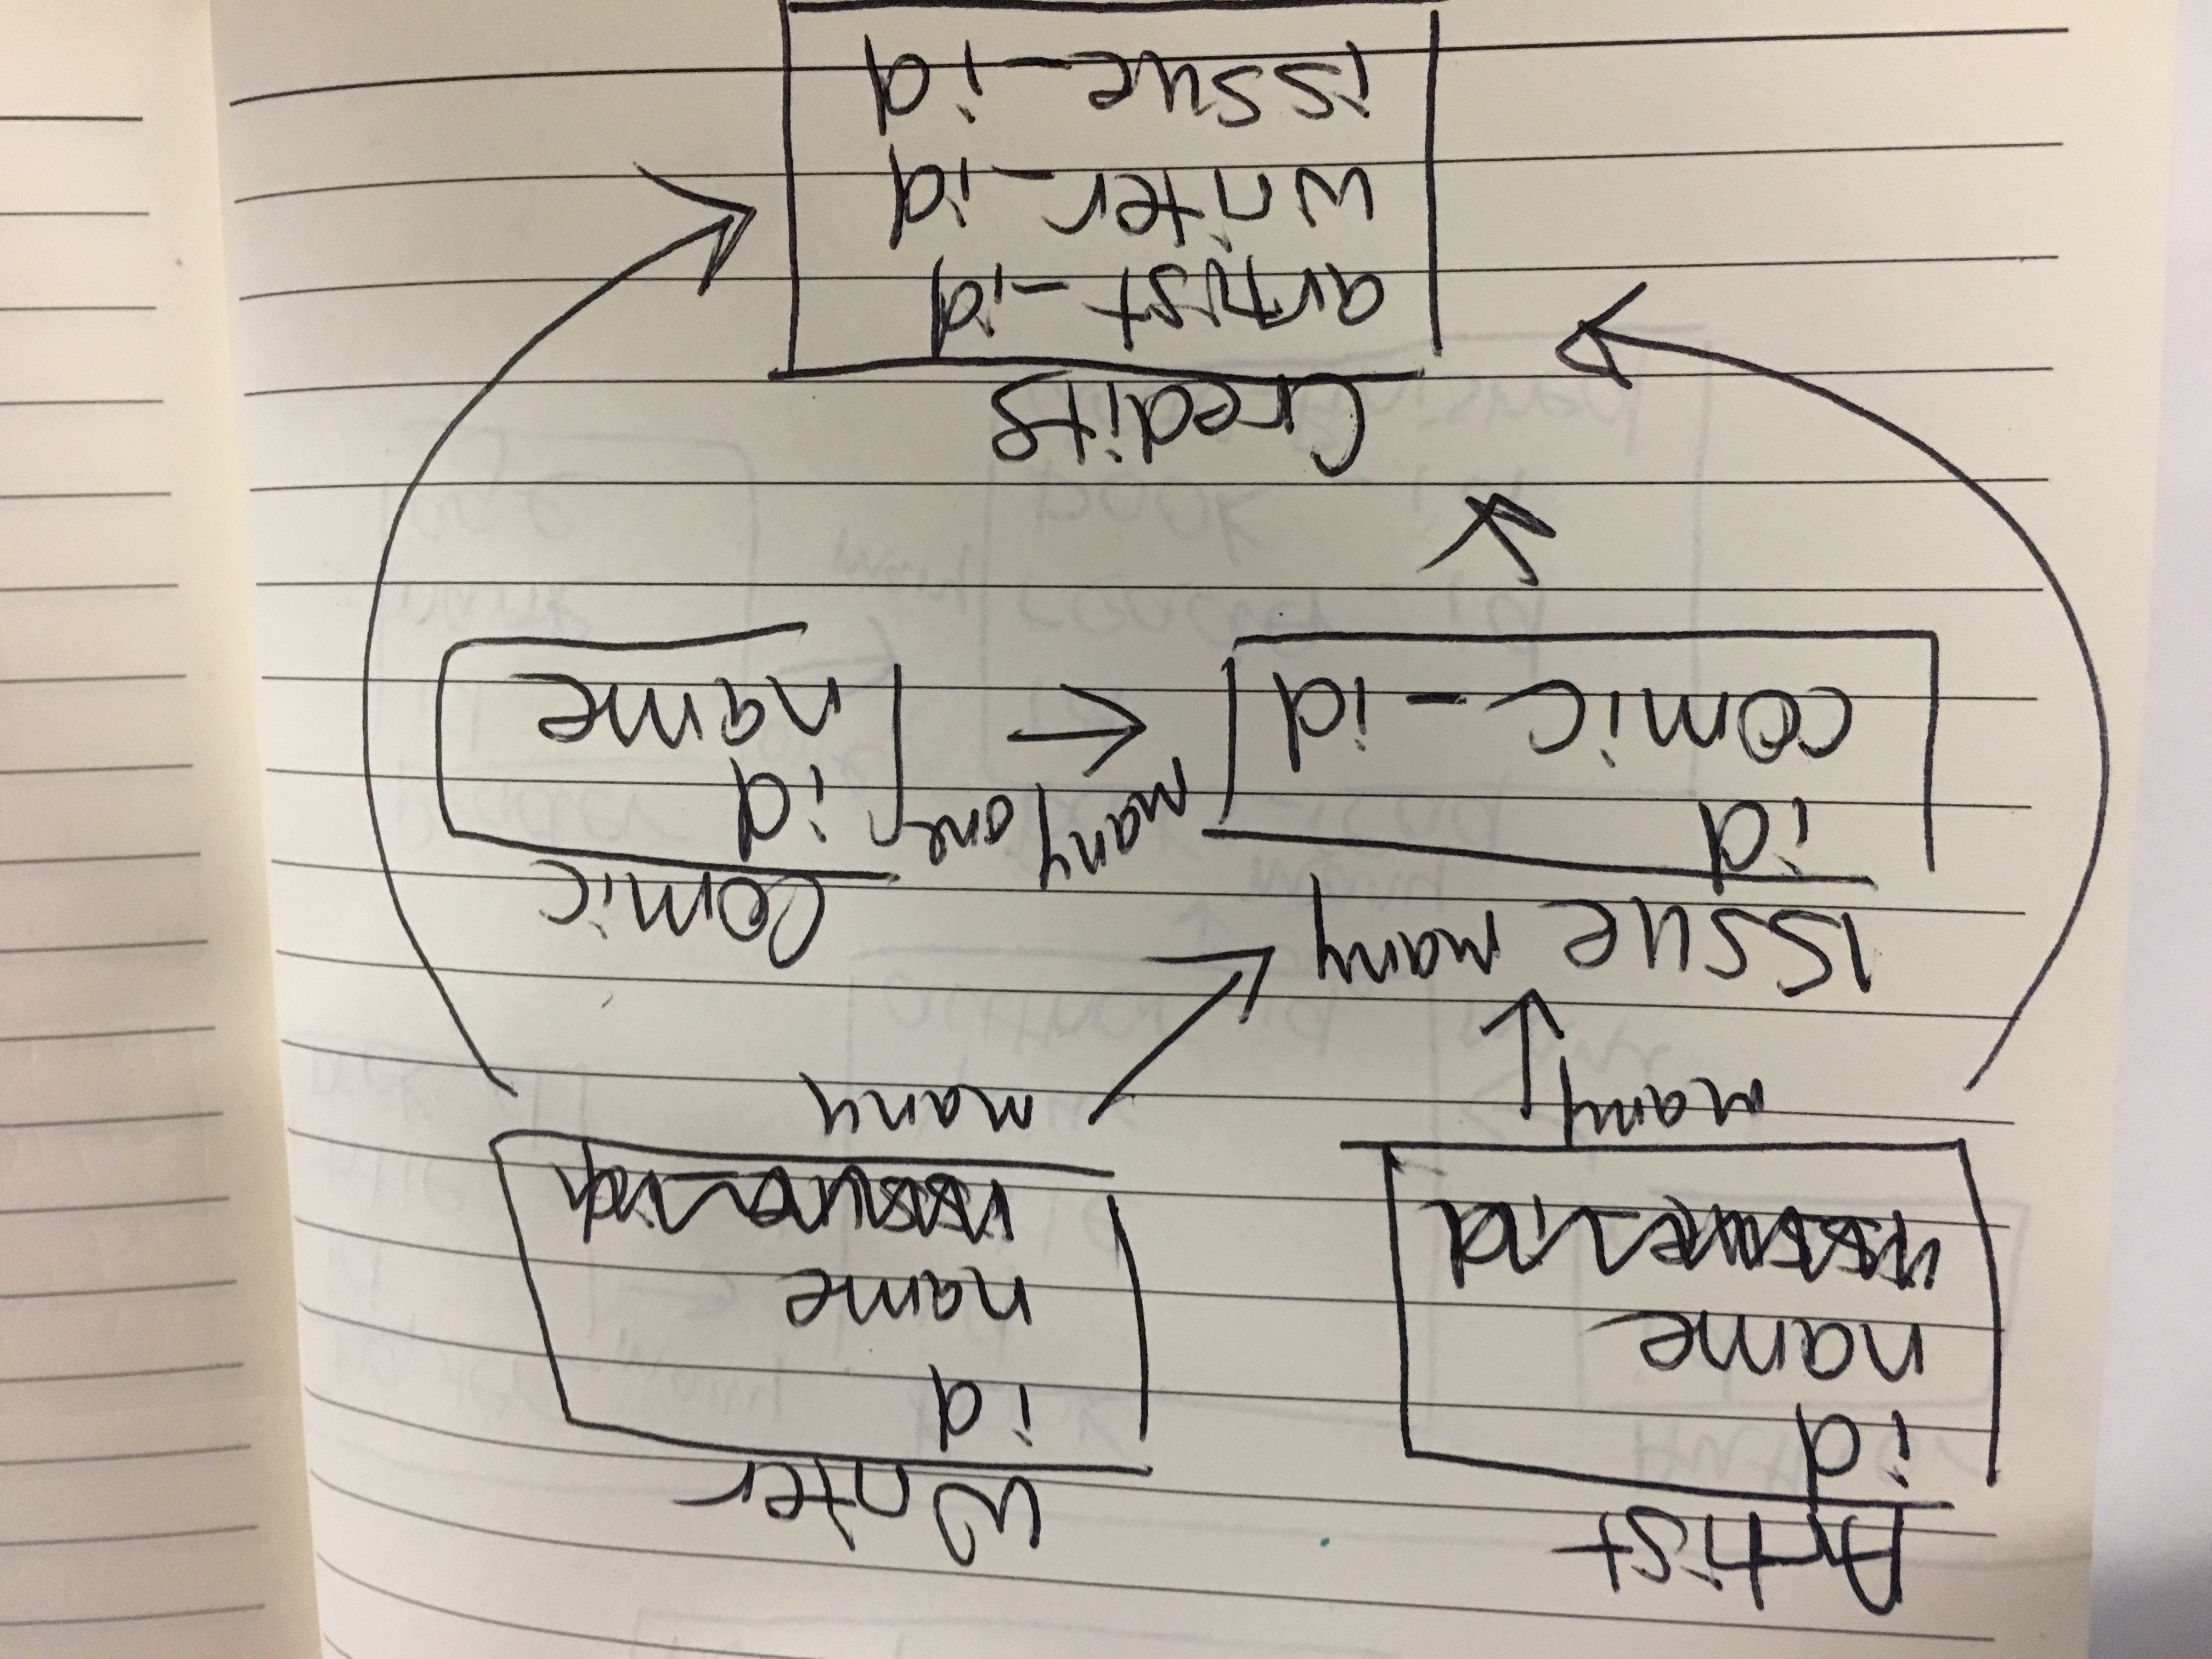 Artist
id
name
many
Writer
id
name
many
Issue many
id
comic_id
many one
Comic
id
name
Credits
artist_id
writer_id
issue_id